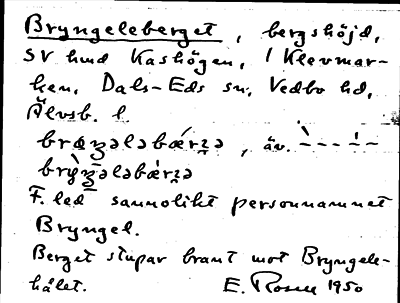 Bryngeleberget, bergshöjd,
SV hmd Kashögen, i Klevmar-
ken, Dals-Eds sn, Vedbo hd,
Älvsb. l.
, äv.
F. led sannolikt personnamnet
Bryngel.
Berget stupar brant mot Bryngele-
hålet. E. Rosell 1950